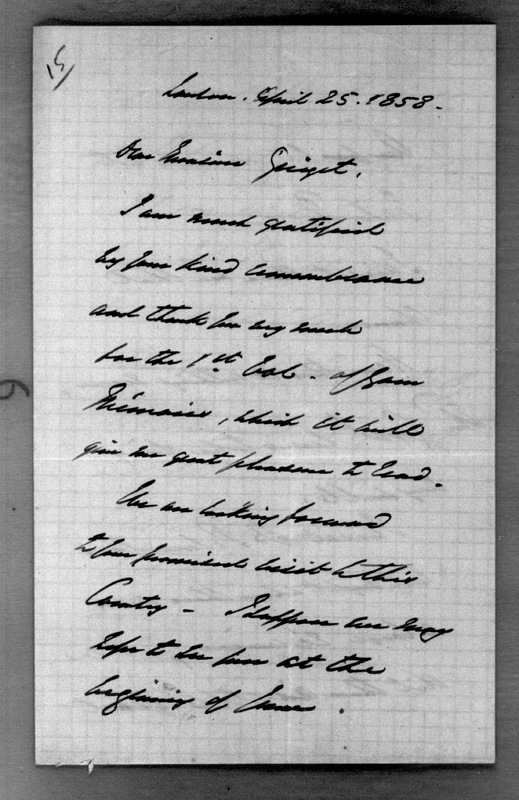 London. April 25. 1858.
Dear Monsieur Guizot,
I am much gratified
by your kind remembrance
and thank you very much
for the 1st Vol. of your
Mémoires, which it will
give me great pleasure to read.
We are looking forward
to your promised visit to this
Country – I suppose we may
hope to see you at the
beginning of June.